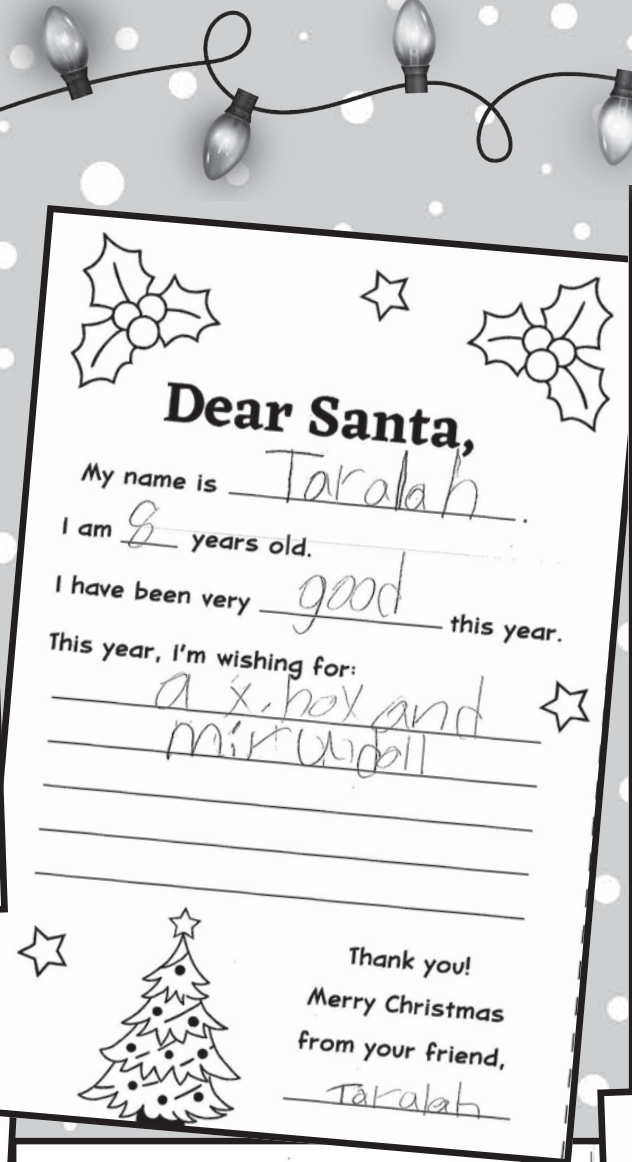 Dear Santa,
My name is Taralah.
I am 8 years old.
I have been very good this year.
This year, I'm wishing for:
a x.box and
doll
Thank you!
Merry Christmas
from your friend,
Taralah